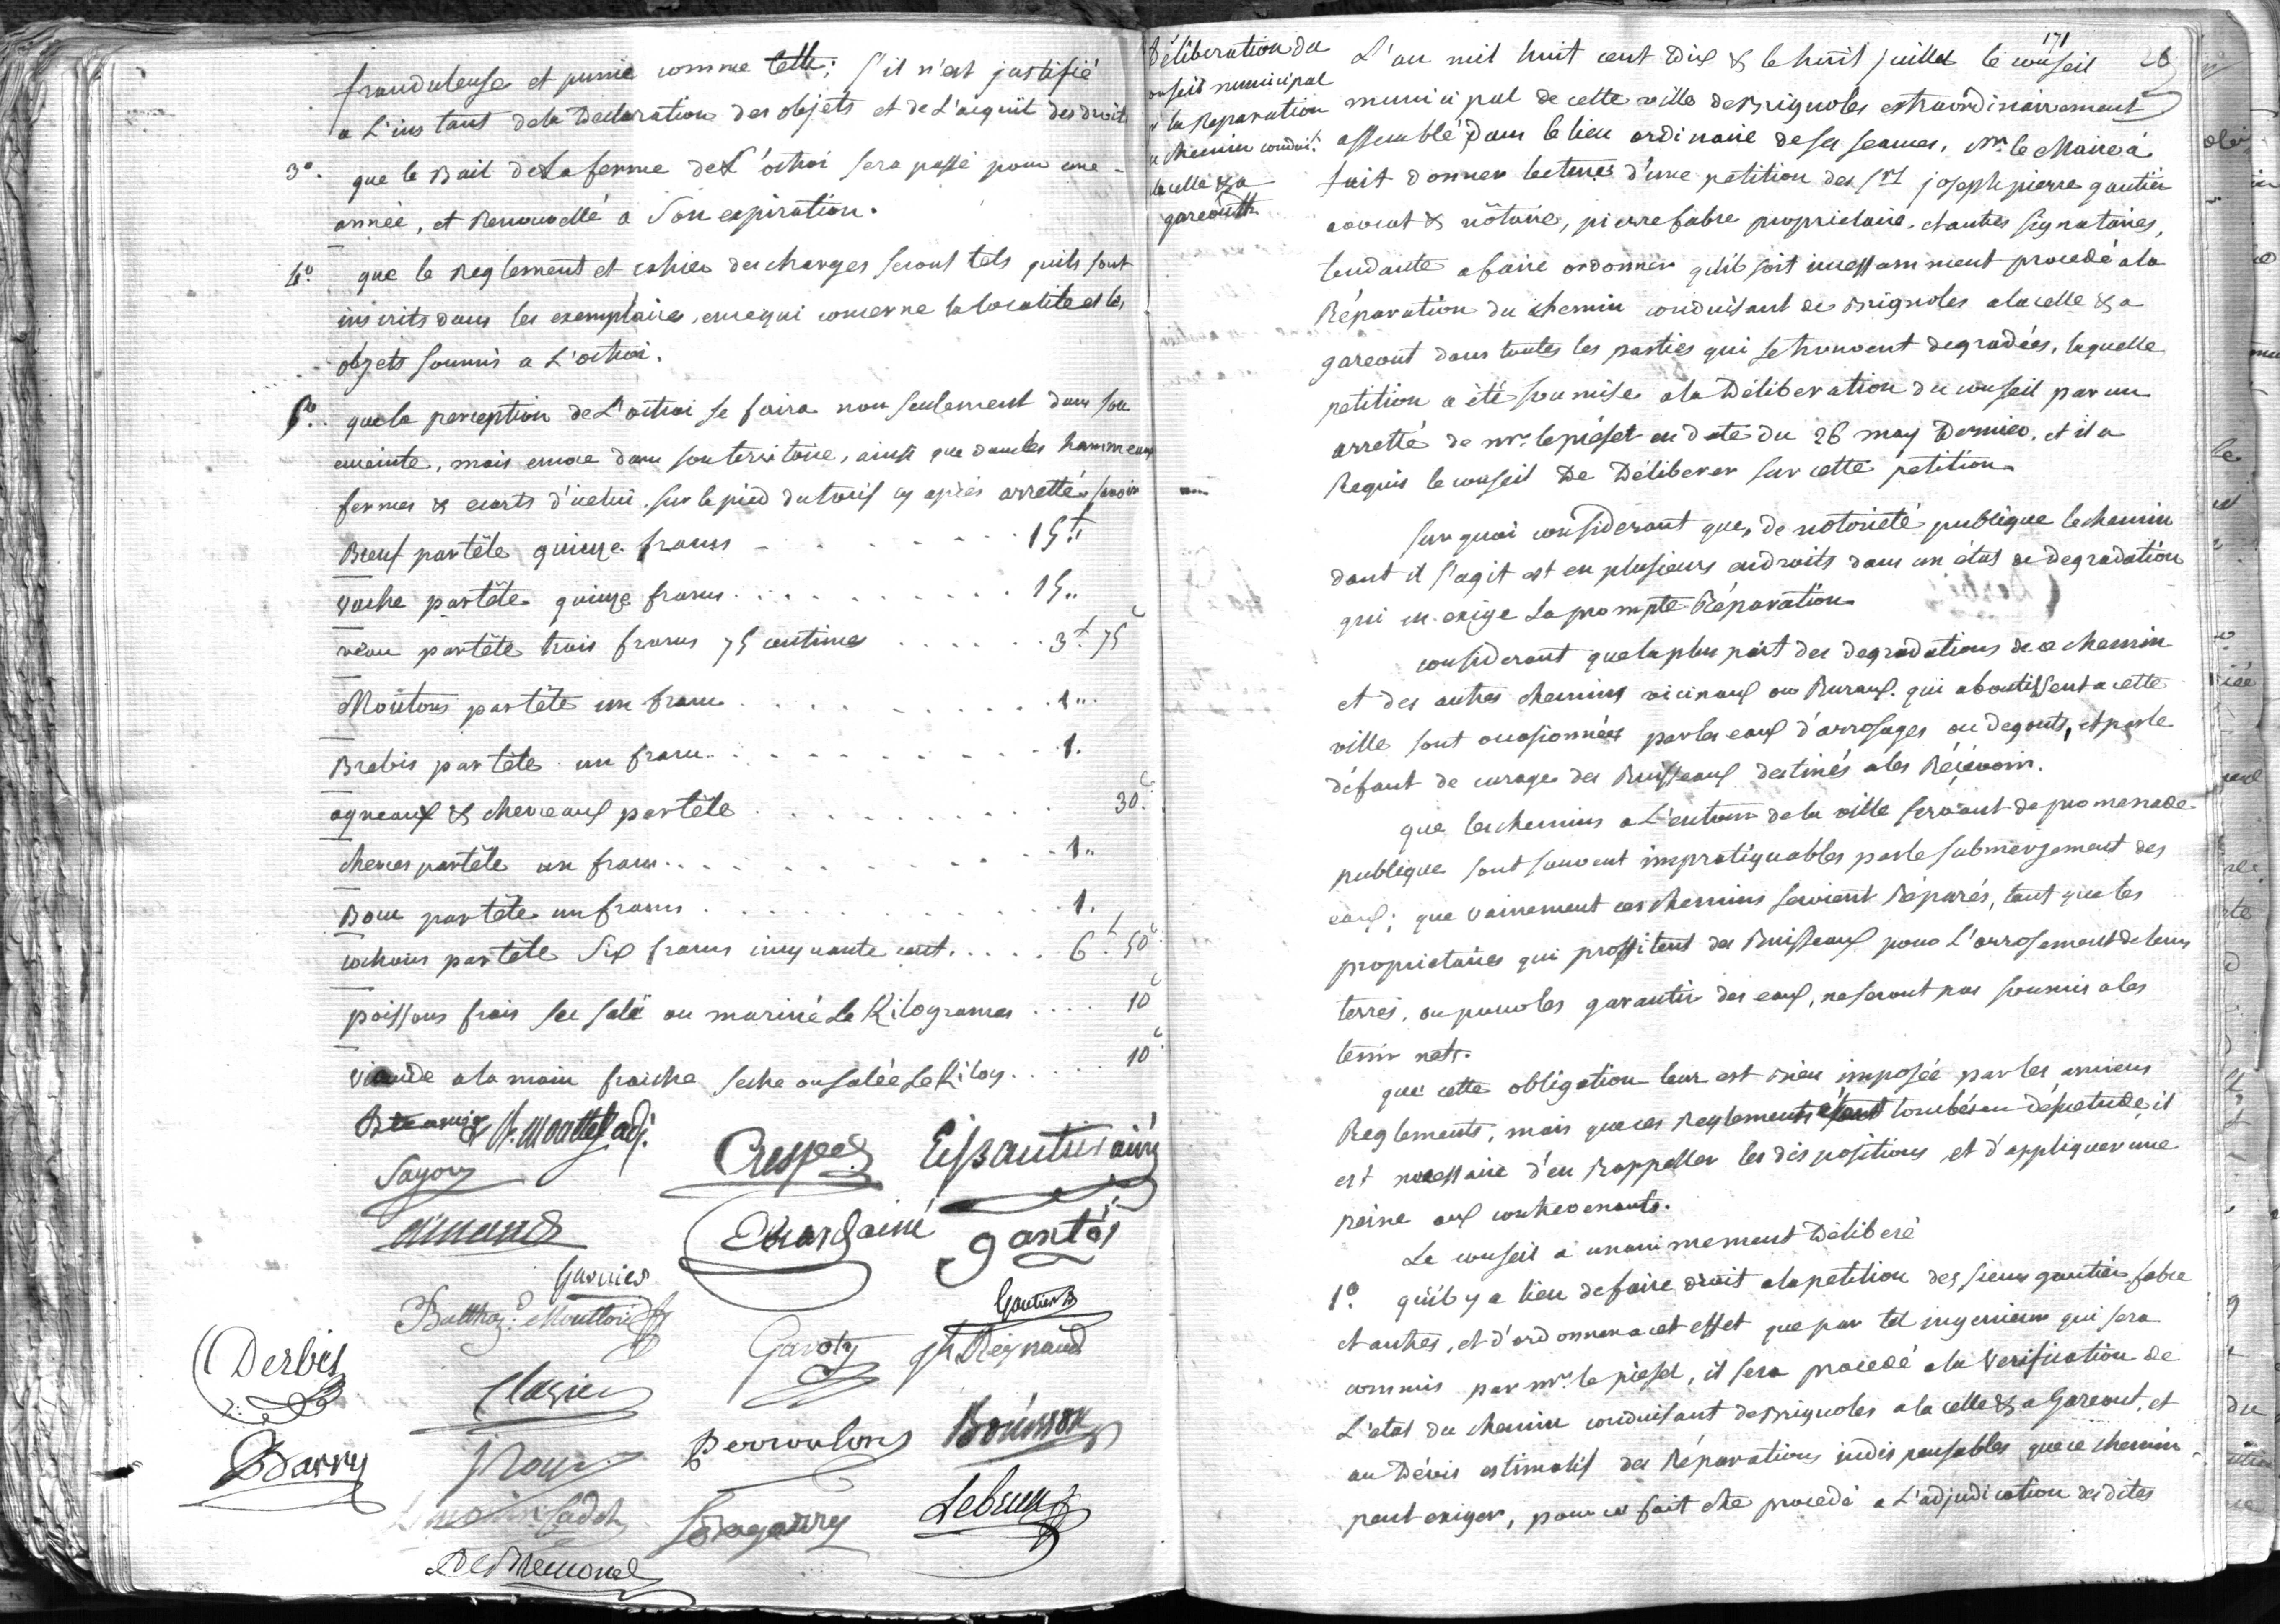 frauduleuse et punie comme telle; s'il n'est justifié
a L'instant dela Declaration des objets et de L'acquit des droits
3º. que le Bail dela ferme de L'octroi sera passé pour une
année, et Renouvellé a son expiration.
4º. que le Reglement et cahier des charges seront tels quils sont
inscrits dans les exemplaires, encequi concerne la localité et les
objets soumis a L'octroi.
5º. que la perception de L'octroi se faira non seulement dans son
enceinte, mais encore dans son territoire, ainsi que dans les hammeaux
fermes & ecarts d'icelui. sur le pied du tarif cy après arretté. savoir
Bœuf par tête quinze francs . . . . . 15f..
vache par tête quinze francs . . . . . 15..
veau par tête trois francs 75 centimes . . . . . 3f. 75c
Moutons par tête un franc . . . . . 1..
Brebis par tête un franc . . . . . 1.
agneaux & chevreaux par tête . . . . . 30c.
chevres par tête un franc . . . . . 1..
Bouc par tête un francs . . . . . 1.
cochons par tête Six francs cinquante cent. . . . . 6f. 50c
poissons frais sec salé ou mariné Le Kilogrames . . . . 10c
viande a la main fraiche seche ou salée Le Kilog. . . . . 10c
adj.
Crespel
Garnier
Gavoty
Gautier
Reynaud
Derbès
Clavier
Barry
Perroulon
Bouisson
Lebrun
Déliberation du
onseil municipal
la Reparation
chemin conduit.
la celle & a
gareoult
171
26
L'an mil huit cent Dix & le huit juillet le conseil
municipal de cette ville de Brignoles extraordinairement
assemblé dans le lieu ordinaire de ses seances, Mr. le Maire a
fait donner lecture d'une petition des Srs joseph pierre gautier
avocat & nôtaire, pierre fabre proprietaire. et autres signataires,
tendante a faire ordonner qu'il soit incessamment procedé ala
Réparation du chemin conduisant de Brignoles a la celle & a
gareout dans toutes les parties qui se trouvent degradées, laquelle
petition a été soumise ala Déliberation du conseil par un
arretté de mr. le préfet en date du 26 may Dernier, et il a
Requis le conseil De Déliberer sur cette petition
sur quoi considerant que, de notorieté publique le chemin
dont il s'agit est en plusieurs endroits dans un état de degradation
qui en exige La prompte Réparation
considerant que la plus part des degradations de ce chemin
et des autres chemins vicinaux ou Ruraux. qui aboutissent a cette
ville sont occasionnées par les eaux d'arrosages ou degouts, et par le
défaut de curage des Ruisseaux destinés ales Réçevoir.
que les chemins a L'entour de la ville servant de promenade
publique sont souvent impratiquables par le submergement des
eaux; que vainement ces chemins seroient Réparés, tant que les
proprietaires qui proffitent des Ruisseaux pour L'arrosement de leurs
terres, ou pour les garantir des eaux, ne seront pas soumis a les
tenir nets.
que cette obligation leur est bien imposée par les anciens
Reglements, mais que ces Reglements étant tombés en désuetude, il
est necessaire d'en Rappeller les dispositions et d'appliquer une
peine aux contrevenants.
Le conseil a unanimement Déliberé
1º. qu'il y a lieu de faire droit a la petition des sieurs gautier, fabre
et autres, et d'ordonner a cet effet que par tel ingenieur qui sera
commis par mr. le préfet, il sera procedé a la verification de
L'etat du chemin conduisant de Brignoles a la celle & a Gareout, et
au Dévis estimatif des Réparations indispensables que ce chemin
peut exiger, pour ce fait etre procedé a L'adjudication desdites